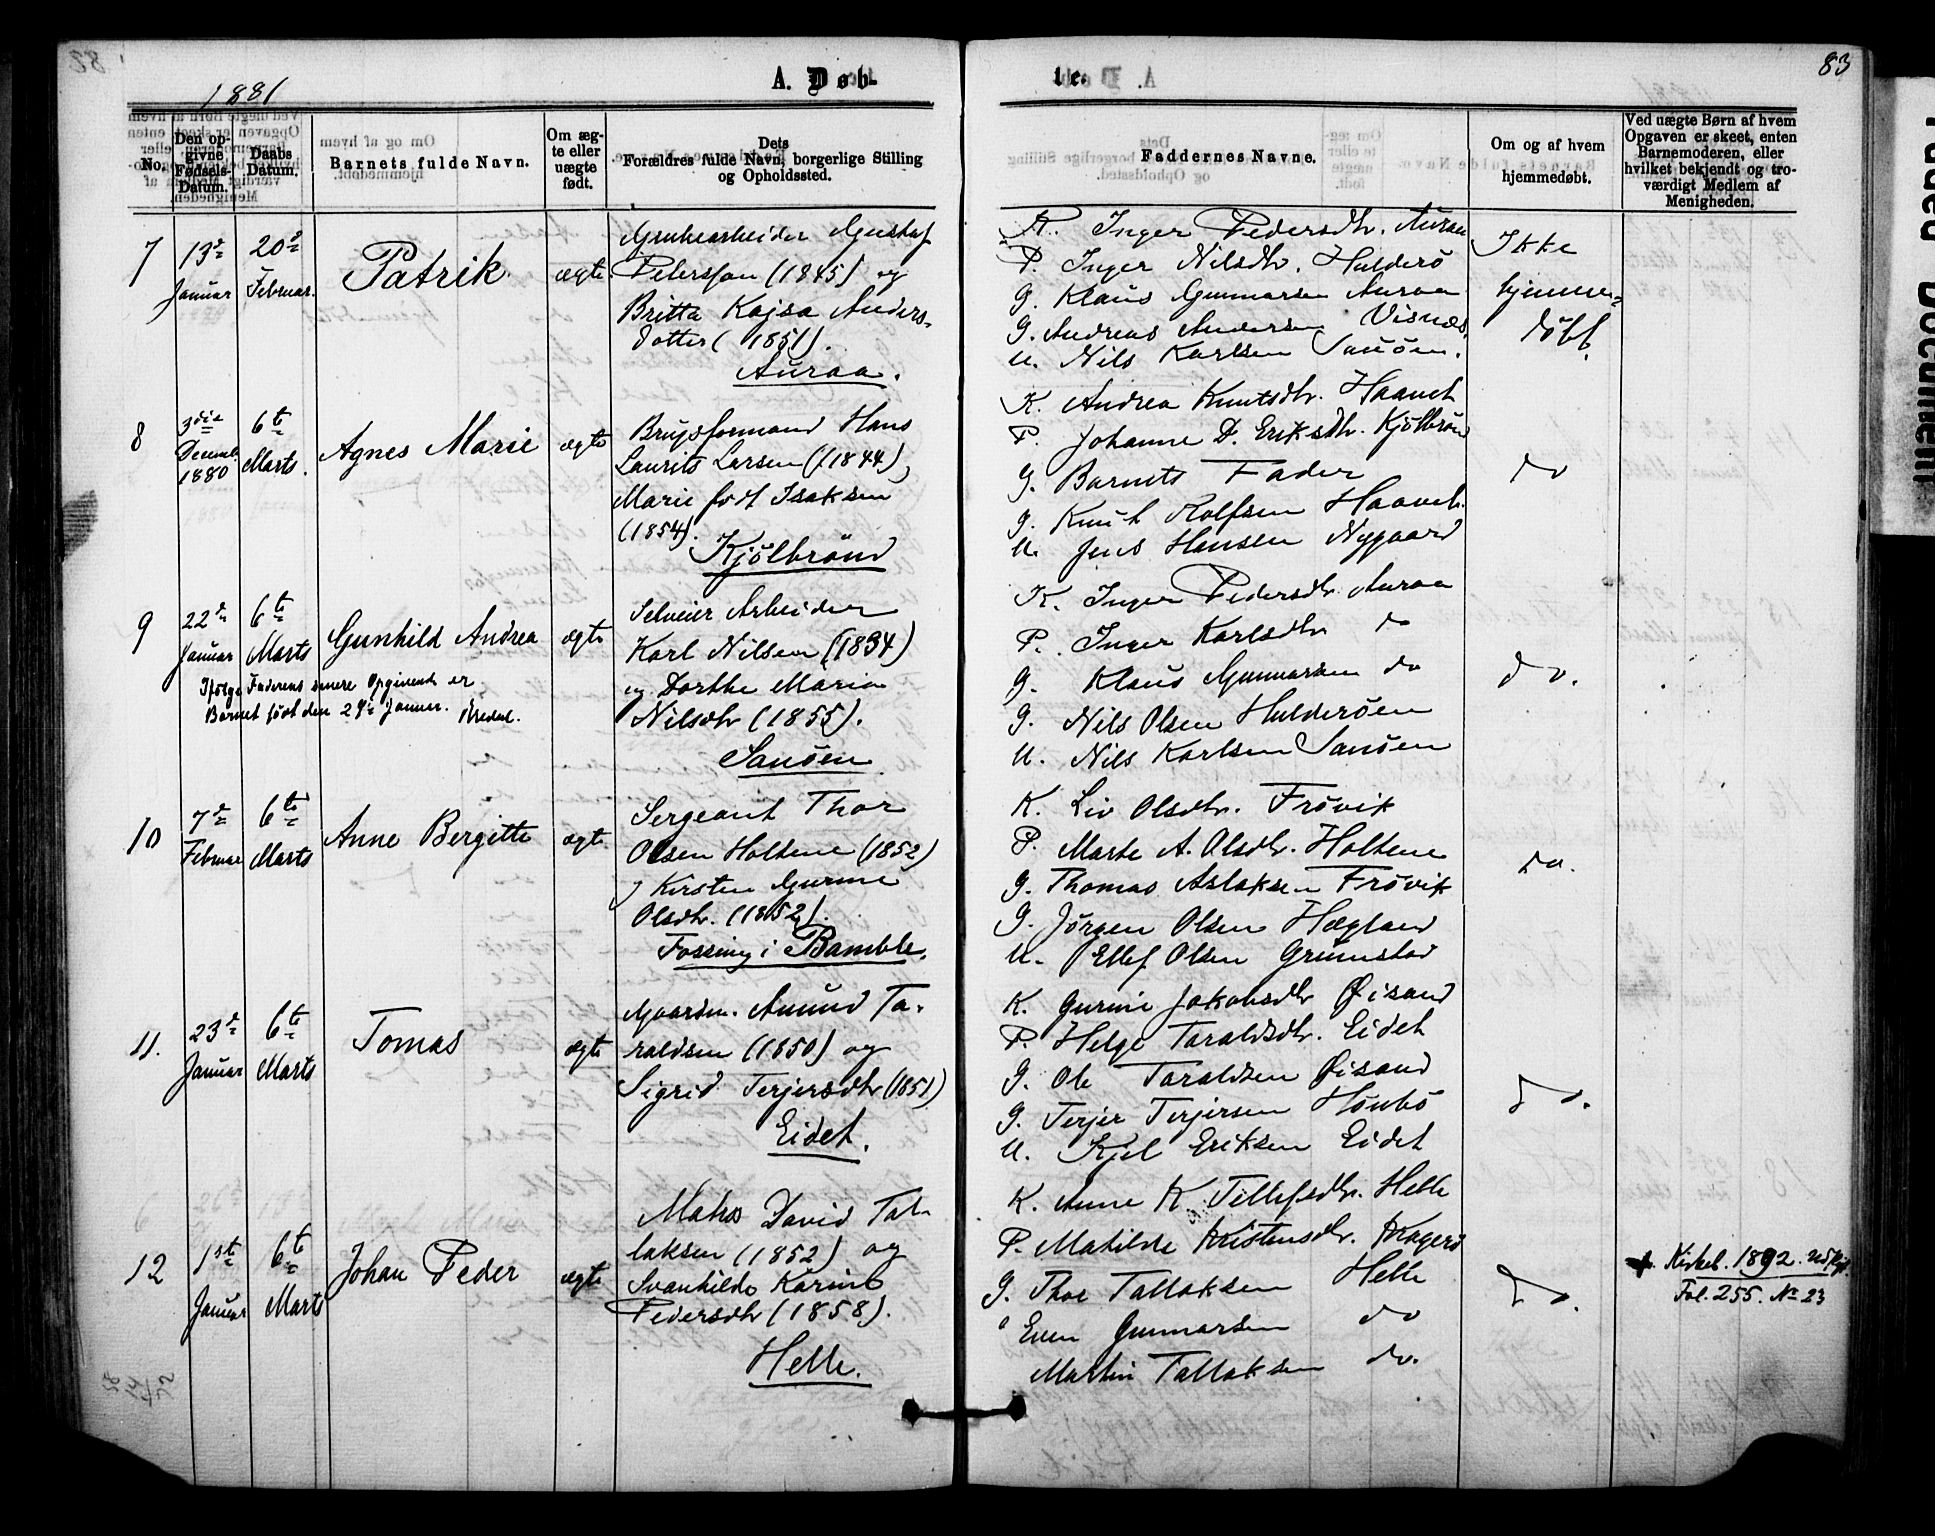 83
1881
A. Døb-
te.
No.
Den op-
givne
Fødsels-
Datum.
Daabs
Datum.
Barnets fulde Navn.
Om æg-
te eller
uægte
født.
Dets
Forældres fulde Navn, borgerlige Stilling
og Opholdssted.
Faddernes Navne.
Om og af hvem
hjemmedøbt.
Ved uægte Børn af hvem
Opgaven er skeet, enten
Barnemoderen, eller
hvilket bekjendt og tro-
værdigt Medlem af
Menigheden.
7
13de
Januar
20de
Februar.
Patrik
ægte
Grubearbeider Gustaf
Petersson (1845) og
Britta Kajsa Anders-
dotter (1851).
Auraa.
K. Inger Pedersdtr. Auraa
P. Inger Nilsdtr. Hulderö
G. Klaus Gunnarsen Auraa
G. Andreas Andersen Visnæs
U. Nils Karlsen Sanöen.
Ikke
hjemme-
döbt.
8
3die
Decemb.
1880
6te
Marts.
Agnes Marie
ægte
Brugsformand Hans
Laurits Larsen (1844),
Marie født Isaksen
(1854).
Kjölbrönd
K. Andrea Knutsdtr. Haavet
P. Johanne D. Eriksdtr. Kjölbrönd
G. Barnets Fader
G. Knut Rolfsen Haavet.
U. Jens Hansen Nygaard
do
9
22de
Januar
6te
Marts
Gunhild Andrea
ægte
Ifølge Faderens senere Opgivende er
Barnet født den 24de Januar. Bredal.
Selveier Arbeider
Karl Nilsen (1834)
og Dorthe Maria
Nilsdtr (1855).
Sanöen
K. Inger Pedersdtr. Auraa
P. Inger Karlsdtr do
G. Klaus Gunnarsen do
G. Nils Olsen Hulderöen
U. Nils Karlsen Sanöen
do.
10
7de
Februar
6te
Marts
Anne Bergitte
ægte
Sergeant Thor
Olsen Holtene (1852)
Kirsten Gurine
Olsdtr. (1852).
Fossing i Bamble.
K. Liv Olsdtr. Frövik
P. Marte A. Olsdtr. Holtene
G. Thomas Aslaksen Frövik
G. Jörgen Olsen Hægland
U. Ellef Olsen Grimstad
do.
11.
23de
Januar
6te
Marts
Tomas
ægte
Gaardm. Amund Ta-
raldsen (1850) og
Sigrid Terjersdtr (1851)
Eidet.
K. Gurine Jakobsdtr Øisand
P. Helge Taraldsdtr. Eidet
G. Ole Taraldsen Øisand
G. Terjer Terjersen Hönbö
U. Kjel Eriksen Eidet
do.
12
1ste
Januar
6te
Marts
Johan Peder
ægte
Matros David Tal-
laksen (1852) og
Svanhilde Karine
Pedersdtr (1858).
Helle.
K. Anne K. Tellefsdtr. Helle
P. Matilde Kristensdtr. Kragerö
G. Thor Tallaksen Helle
Even Gunnarsen do
Martin Tallaksen do.
do.
Kirkeb. 1892. Udskr.
Fol. 255. No 23
58
14
72